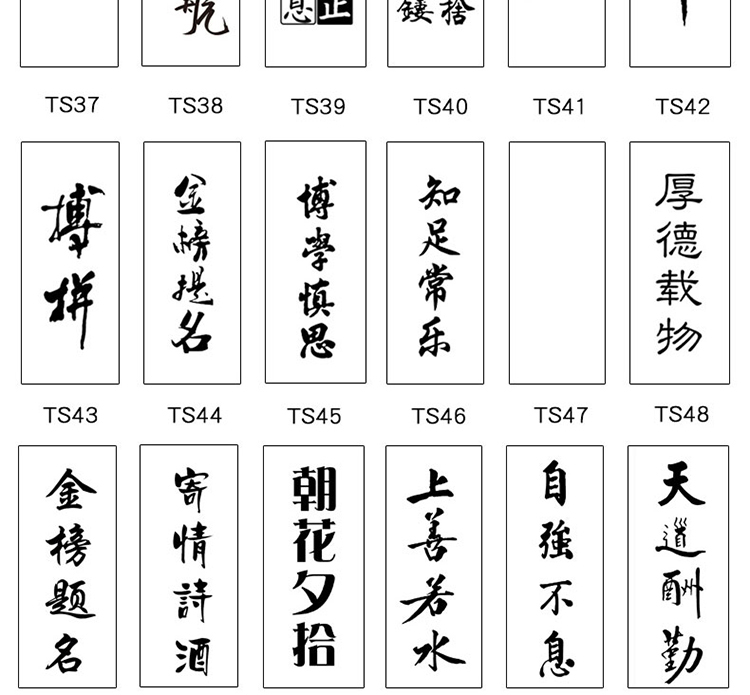 息正
捨
TS37 TS38 TS39 TS40 TS41 TS42
搏拼
金榜提名
博學慎思
知足常乐
厚德载物
TS43 TS44 TS45 TS46 TS47 TS48
金榜题名
寄情詩酒
朝花夕拾
上善若水
自強不息
天道酬勤